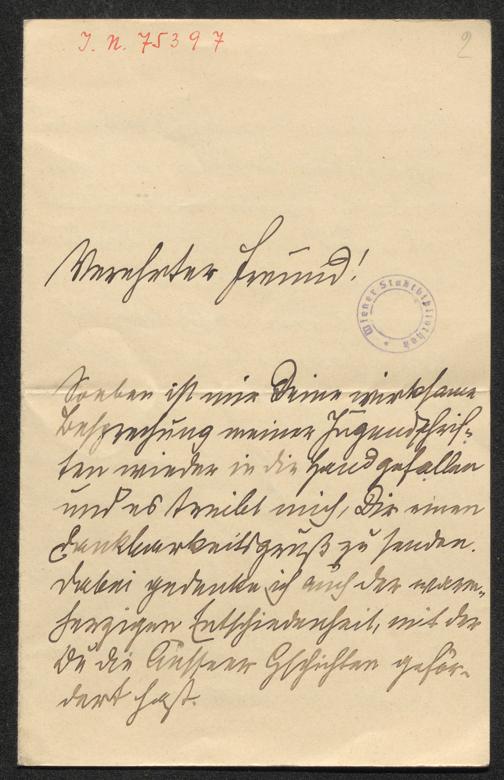 J. N. 75397
2
Verehrter Freund!
Wiener Stadtbibliothek
Soeben ist mir Deine wirksame
Besprechung meiner Jugendschrif-
ten wieder in die Hand gefallen
und es treibt mich, Dir einen
Dankbarkeitsgruß zu senden.
Dabei gedenke ich auch der warm-
herzigen Entschiedenheit, mit der
Du die Ausseer Gschichten geför-
dert hast.